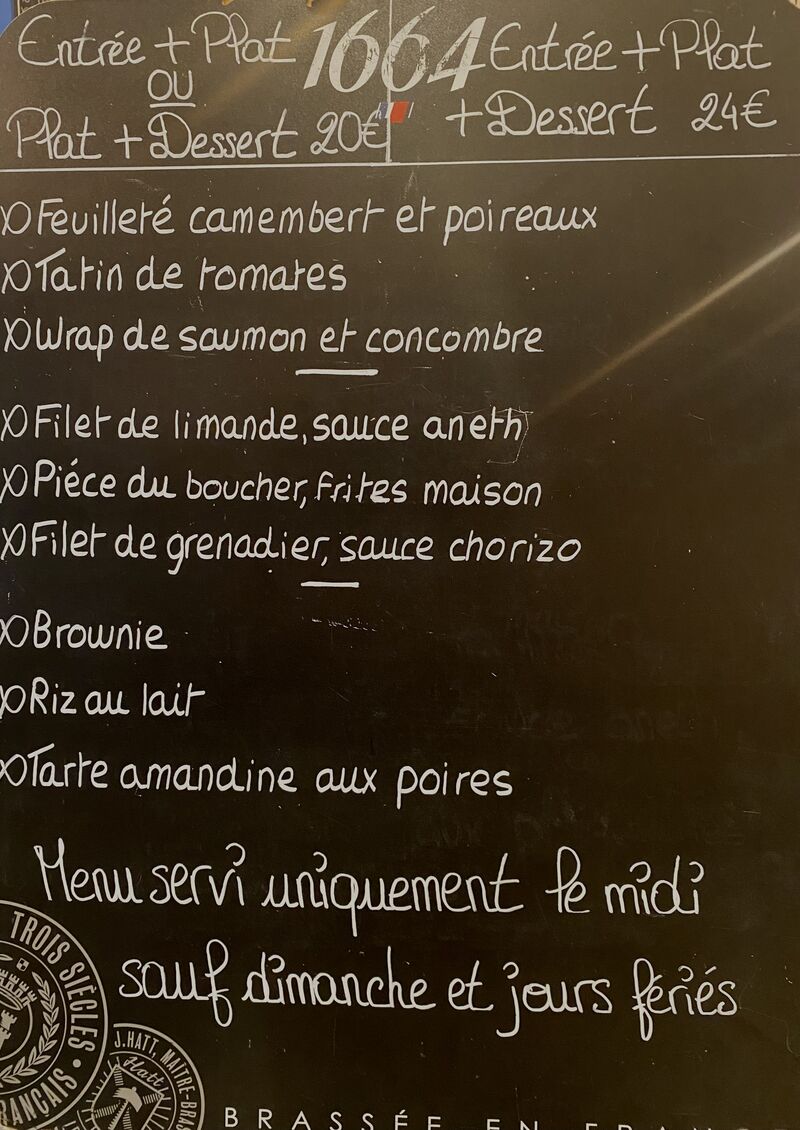 Entrée + Plat
OU
Plat + Dessert 20€
1664
Entrée + Plat
+ Dessert 24€
Feuilleté camembert et poireaux
Tatin de tomates
Wrap de saumon et concombre
Filet de limande, sauce aneth
Piéce du boucher, frites maison
Filet de grenadier, sauce chorizo
Brownie
Riz au lait
Tarte amandine aux poires
Menu servi uniquement le midi
sauf dimanche et jours fériés
TROIS SIÈCLES •
J. HATT, MAITRE-
Hatt
BRASSÉE EN